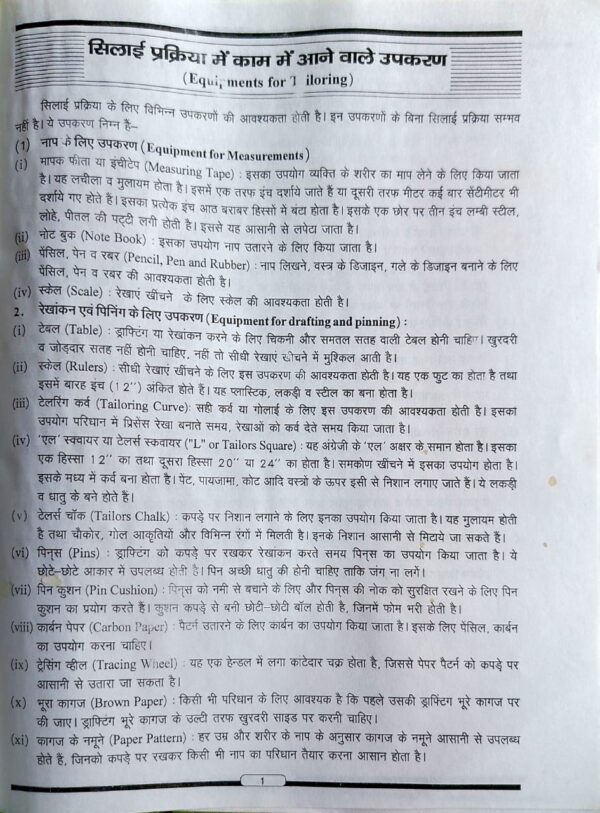 सिलाई प्रक्रिया में काम में आने वाले उपकरण
(Equipments for T iloring)
सिलाई प्रक्रिया के लिए विभिन्न उपकरणों की आवश्यकता होती है। इन उपकरणों के बिना सिलाई प्रक्रिया सम्भव
नहीं है। ये उपकरण निम्न है–
(1) नाप के लिए उपकरण (Equipment for Measurements)
(i) मापक फीता या इंचीटेप (Measuring Tape) : इसका उपयोग व्यक्ति के शरीर का माप लेने के लिए किया जाता
है। यह लचीला व मुलायम होता है। इसमें एक तरफ इंच दर्शाये जाते है या दूसरी तरफ मीटर कई बार सेंटीमीटर भी
दर्शाये गए होते है। इसका प्रत्येक इंच आठ बराबर हिस्सों में बंटा होता है। इसके एक छोर पर तीन इंच लम्बी स्टील,
लोहे, पीतल की पट्टी लगी होती है। इससे यह आसानी से लपेटा जाता है।
(ii) नोट बुक (Note Book) : इसका उपयोग नाप उतारने के लिए किया जाता है।
(iii) पेंसिल, पेन व रबर (Pencil, Pen and Rubber) : नाप लिखने, वस्त्र के डिजाइन, गले के डिजाइन बनाने के लिए
पेंसिल, पेन व रबर की आवश्यकता होती है।
(iv) स्केल (Scale) : रेखाएं खींचने के लिए स्केल की आवश्यकता होती है।
2. रेखांकन एवं पिनिंग के लिए उपकरण (Equipment for drafting and pinning) :
(i) टेबल (Table) : ड्राफ्टिंग या रेखांकन करने के लिए चिकनी और समतल सतह वाली टेबल होनी चाहिए। खुरदरी
व जोड़दार सतह नहीं होनी चाहिए, नहीं तो सीधी रेखाएं खींचने में मुश्किल आती है।
(ii) स्केल (Rulers) : सीधी रेखाएं खींचने के लिए इस उपकरण की आवश्यकता होती है। यह एक फुट का होता है तथा
इसमें बारह इंच (12") अंकित होते है। यह प्लास्टिक, लकड़ी व स्टील का बना होता है।
(iii) टेलरिंग कर्व (Tailoring Curve): सही कर्व या गोलाई के लिए इस उपकरण की आवश्यकता होती है। इसका
उपयोग परिधान में प्रिंसेस रेखा बनाते समय, रेखाओं को कर्व देते समय किया जाता है।
(iv) 'एल' स्क्वायर या टेलर्स स्कवायर ("L" or Tailors Square) : यह अंग्रेजी के 'एल' अक्षर के समान होता है। इसका
एक हिस्सा 12" का तथा दूसरा हिस्सा 20" या 24" का होता है। समकोण खींचने में इसका उपयोग होता है।
इसके मध्य में कर्व बना होता है। पेंट, पायजामा, कोट आदि वस्त्रों के ऊपर इसी से निशान लगाए जाते हैं। ये लकड़ी
व धातु के बने होते हैं।
(v) टेलर्स चॉक (Tailors Chalk) : कपड़े पर निशान लगाने के लिए इनका उपयोग किया जाता है। यह मुलायम होती
है तथा चौकोर, गोल आकृतियों और विभिन्न रंगों में मिलती है। इनके निशान आसानी से मिटाये जा सकते हैं।
(vi) पिन्स (Pins) : ड्राफ्टिंग को कपड़े पर रखकर रेखांकन करते समय पिन्स का उपयोग किया जाता है। ये
छोटे-छोटे आकार में उपलब्ध होती है। पिन अच्छी धातु की होनी चाहिए ताकि जंग ना लगें।
(vii) पिन कुशन (Pin Cushion) : पिन्स को नमी से बचाने के लिए और पिन्स की नोक को सुरक्षित रखने के लिए पिन
कुशन का प्रयोग करते हैं। कुशन कपड़े से बनी छोटी-छोटी बॉल होती है, जिनमें फोम भरी होती है।
(viii) कार्बन पेपर (Carbon Paper) : पैटर्न उतारने के लिए कार्बन का उपयोग किया जाता है। इसके लिए पेंसिल, कार्बन
का उपयोग करना चाहिए।
(ix) ट्रेसिंग व्हील (Tracing Wheel) : यह एक हेन्डल में लगा कांटेदार चक्र होता है, जिससे पेपर पैटर्न को कपड़े पर
आसानी से उतारा जा सकता है।
(x) भूरा कागज (Brown Paper) : किसी भी परिधान के लिए आवश्यक है कि पहले उसकी ड्राफ्टिंग भूरे कागज पर
की जाए। ड्राफ्टिंग भूरे कागज के उल्टी तरफ खुरदरी साइड पर करनी चाहिए।
(xi) कागज के नमूने (Paper Pattern) : हर उम्र और शरीर के नाप के अनुसार कागज के नमूने आसानी से उपलब्ध
होते हैं, जिनको कपड़े पर रखकर किसी भी नाप का परिधान तैयार करना आसान होता है।
1